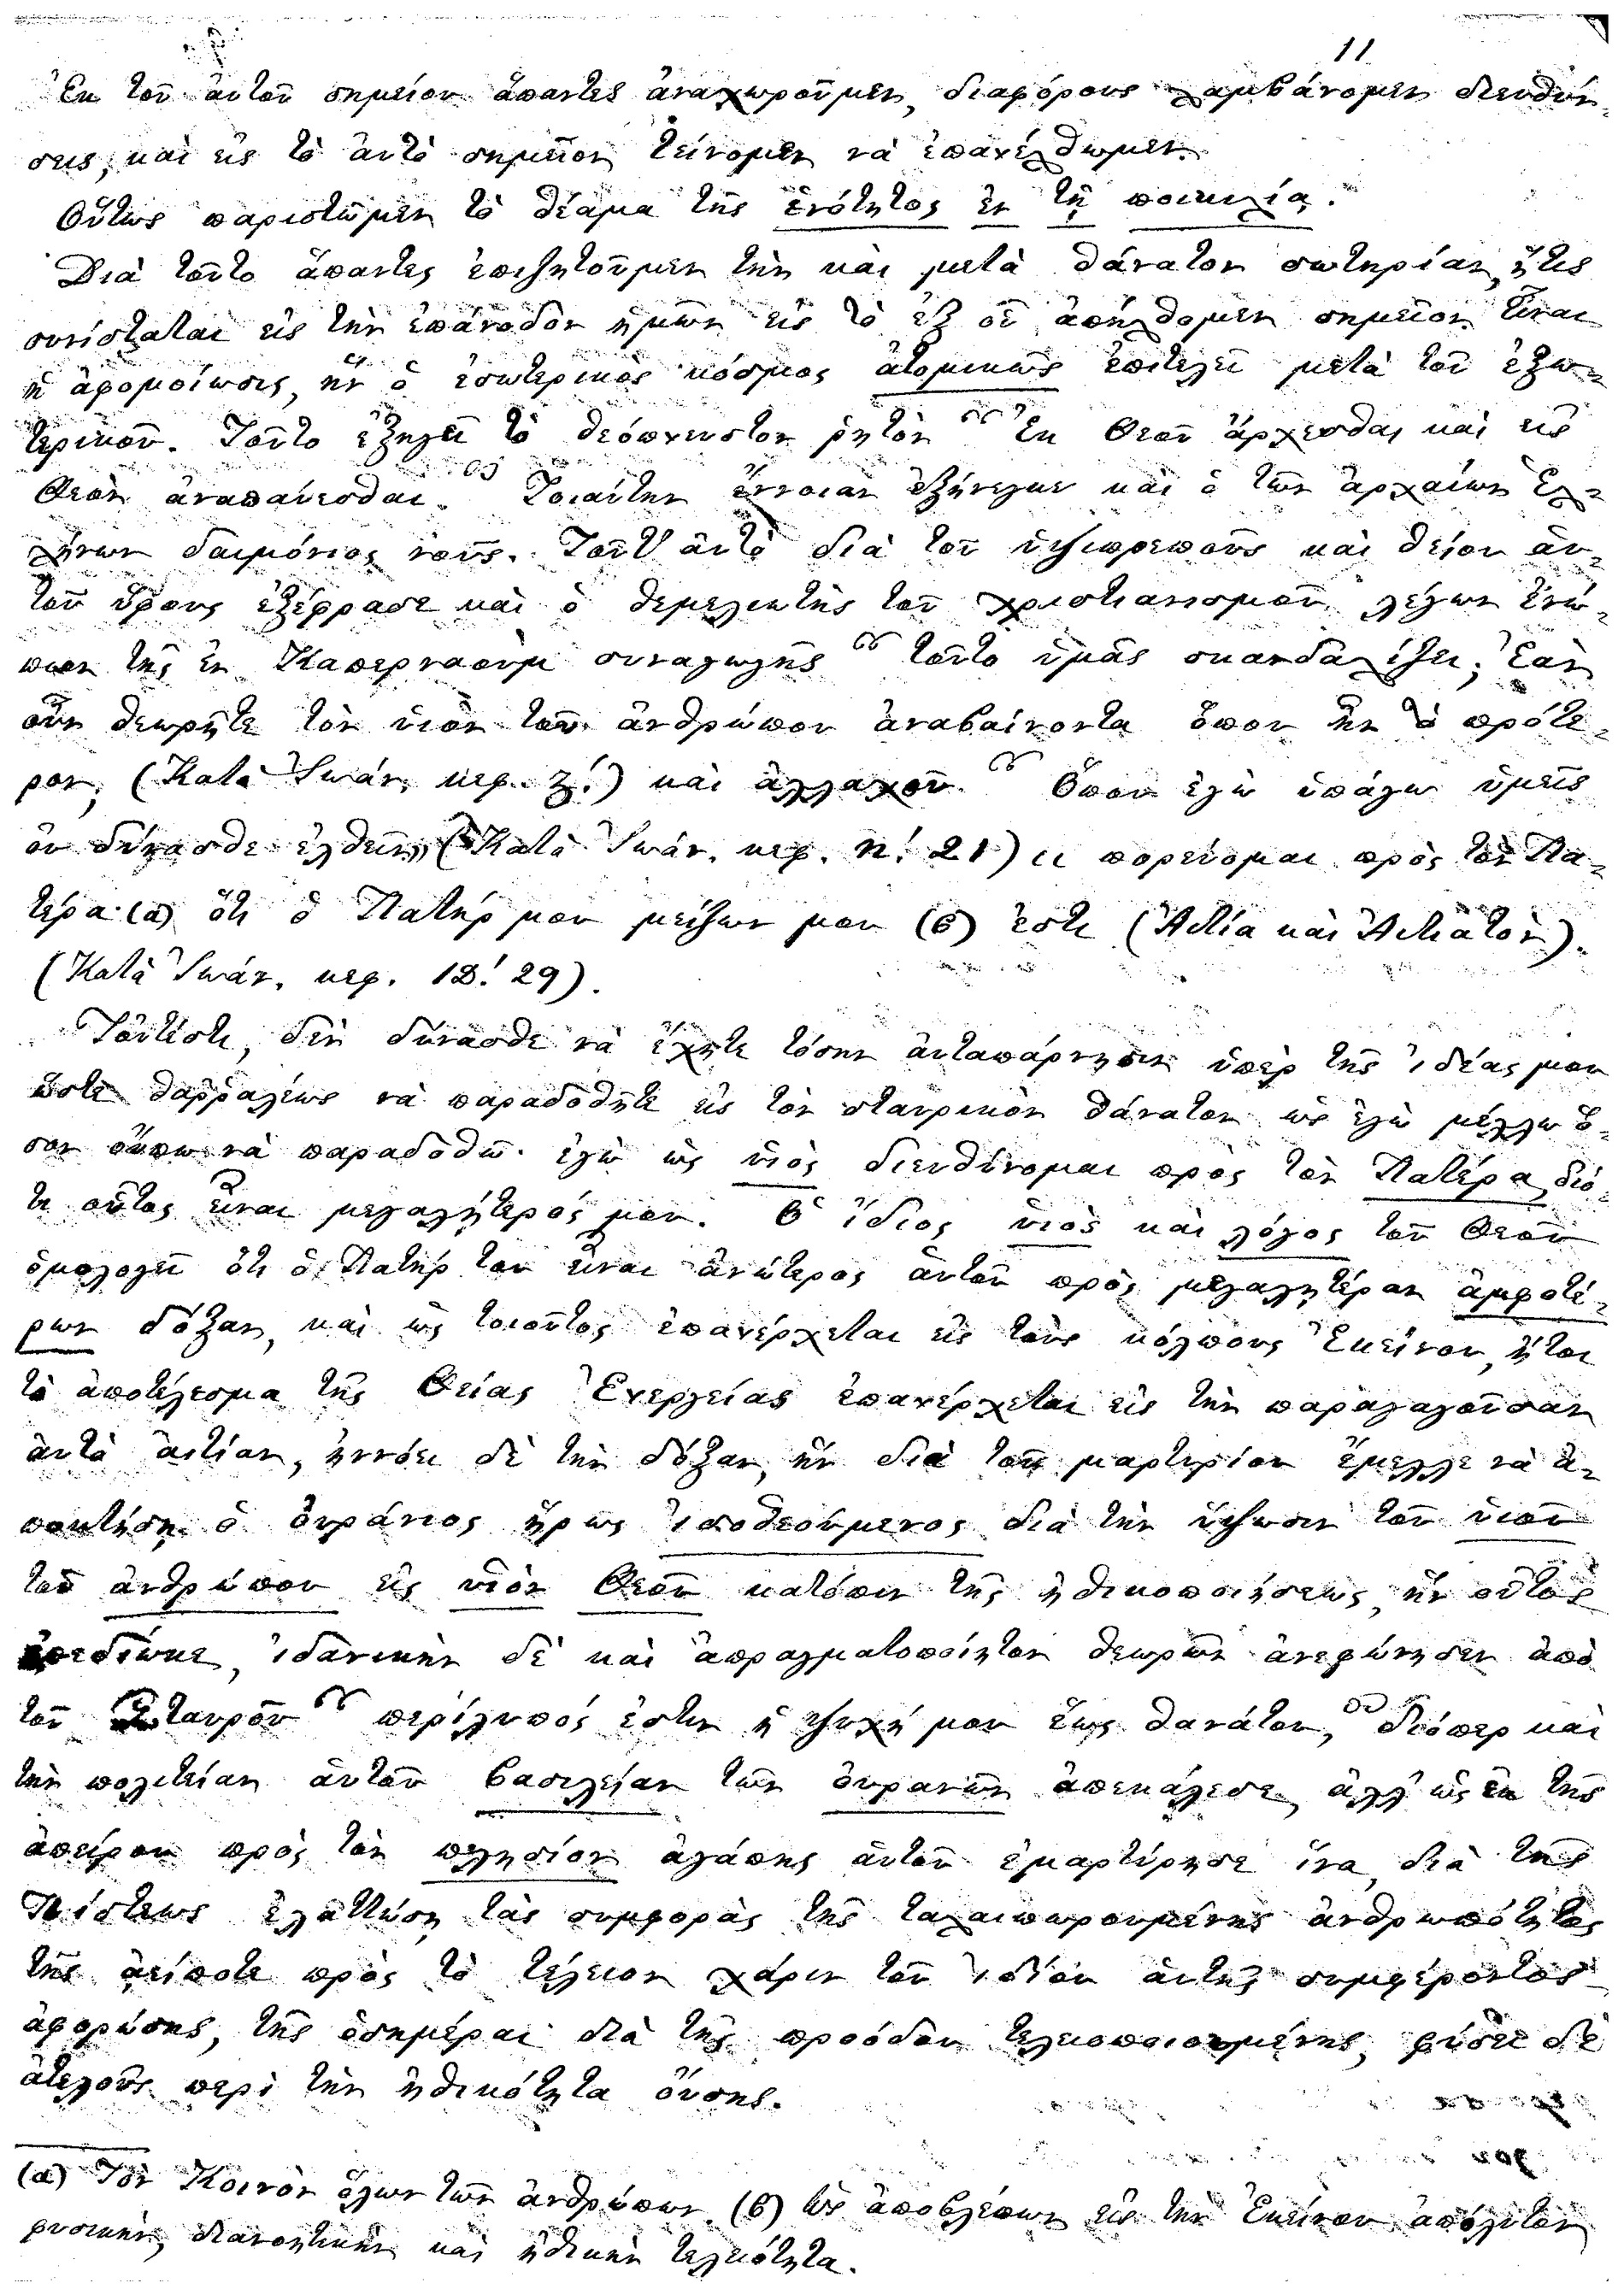 11
Ἐκ τοῦ ἀυτοῦ σημείου ἅπαντες ἀναχωροῦμεν, διαφόρους λαμβάνομεν διευθύν-
σεις, καὶ εἰς τὸ ἀυτὸ σημεῖον τείνομεν νὰ ἐπανέλθωμεν.
Οὕτως παριστῶμεν τὸ θέαμα τῆς ἑνότητος ἐν τῇ ποικιλίᾳ.
Διὰ τοῦτο ἅπαντες ἐπιζητοῦμεν τὴν καὶ μετὰ θάνατον σωτηρίαν, ἥτις
συνίσταται εἰς τὴν ἐπάνοδον ἡμῶν εἰς τὸ ἐξ οὗ ἀπήλθομεν σημεῖον. Εἶναι
ἡ ἀφομοίωσις, ἣν ὁ ἐσωτερικὸς κόσμος ἀτομικῶς ἐπιτελεῖ μετὰ τοῦ ἐξω-
τερικοῦ. Τοῦτο ἐξηγεῖ τὸ θεόπνευστον ῥητὸν “Ἐκ Θεοῦ ἄρχεσθαι καὶ εἰς
Θεὸν ἀναπαύεσθαι.” Τοιαύτην ἔννοιαν ἐξήνεγκε καὶ ὁ τῶν ἀρχαίων Ἑλ-
λήνων δαιμόνιος νοῦς. Τοῦτ' ἀυτὸ διὰ τοῦ ὑψιπρεποῦς καὶ θείου ἀυ-
τοῦ ὕφους ἐξέφρασε καὶ ὁ θεμελιωτὴς τοῦ χριστιανισμοῦ λέγων ἐνώ-
πιον τῆς ἐν Καπερναοὺμ συναγωγῆς “τοῦτο ὑμᾶς σκανδαλίζει; Ἐὰν
οὖν θεωρῆτε τὸν υἱὸν τοῦ ἀνθρώπου ἀναβαίνοντα ὅπου ἦν τὸ πρότε-
ρον, (Κατὰ Ἰωάν. κεφ. ζ!) καὶ ἀλλαχοῦ. “Ὅπου ἐγὼ ὑπάγω ὑμεῖς
ὀυ δύνασθε ἐλθεῖν,, (Κατὰ Ἰωάν. κεφ. η! 21) “πορεύομαι πρὸς τὸν Πα-
τέρα (α) ὅτι ὁ Πατήρ μου μείζων μου (β) ἐστι (Ἀιτία καὶ Ἀιτιατὸν).
(Κατὰ Ἰωάν. κεφ. ΙΔ! 29).
Τοὐτέστι, δὲν δύνασθε νὰ ἔχητε τόσην ἀυταπάρνησιν ὑπὲρ τῆς ἰδέας μου
ὥστε θαῤῥαλέως νὰ παραδοθῆτε εἰς τὸν σταυρικὸν θάνατον ὡς ἐγὼ μέλλω ὅ-
σον οὔπω νὰ παραδοθῶ· ἐγὼ ὡς υἱὸς διευθύνομαι πρὸς τὸν Πατέρα, διό-
τι οὗτος εἶναι μεγαλῄτερός μου. Ὁ ἴδιος υἱὸς καὶ λόγος τοῦ Θεοῦ
ὁμολογεῖ ὅτι ὁ Πατήρ του εἶναι ἀνώτερος ἀυτοῦ πρὸς μεγαλῃτέραν ἀμφοτέ-
ρων δόξαν, καὶ ὡς τοιοῦτος ἐπανέρχεται εἰς τοὺς κόλπους Ἐκείνου, ἤτοι
τὸ ἀποτέλεσμα τῆς Θείας Ἐνεργείας ἐπανέρχεται εἰς τὴν παραγαγοῦσαν
ἀυτὸ ἀιτίαν, ἠννόει δὲ τὴν δόξαν, ἣν διὰ τοῦ μαρτυρίου ἔμελλε νὰ ἀ-
ποκτήσῃ ὁ ὀυράνιος ἥρως ἰσοθεούμενος διὰ τὴν ὕψωσιν τοῦ υἱοῦ
τοῦ ἀνθρώπου εἰς υἱὸν Θεοῦ κατόπιν τῆς ἠθικοποιήσεως, ἣν οὗτος
ἐπεδίωκε, ἰδανικὴν δὲ καὶ ἀπραγματοποίητον θεωρῶν ἀνεφώνησεν ἀπὸ
τοῦ Σταυροῦ “περίλυπός ἐστιν ἡ ψυχή μου ἕως θανάτου,” διόπερ καὶ
τὴν πολιτείαν ἀυτοῦ βασιλείαν τῶν ὀυρανῶν ἀπεκάλεσε, ἀλλ' ὡς ἐκ τῆς
ἀπείρου πρὸς τὸν πλησίον ἀγάπης ἀυτοῦ ἐμαρτύρησε ἵνα διὰ τῆς
Πίστεως ἐλαττώσῃ τὰς συμφορὰς τῆς ταλαιπωρουμένης ἀνθρωπότητος
τῆς ἀείποτε πρὸς τὸ τέλειον χάριν τοῦ ἰδίου ἀυτῆς συμφέροντος
ἀφορώσης, τῆς ὁσημέραι διὰ τῆς προόδου τελειοποιουμένης, φύσει δὲ
ἀτελοῦς περὶ τὴν ἠθικότητα ὄυσης.
(α) Τὸν Κοινὸν ὅλων τῶν ἀνθρώπων. (β) ὡς ἀποβλέπων εἰς τὴν Ἐκείνου ἀπόλυτον
φυσικὴν, διανοητικὴν καὶ ἠθικὴν τελειότητα.